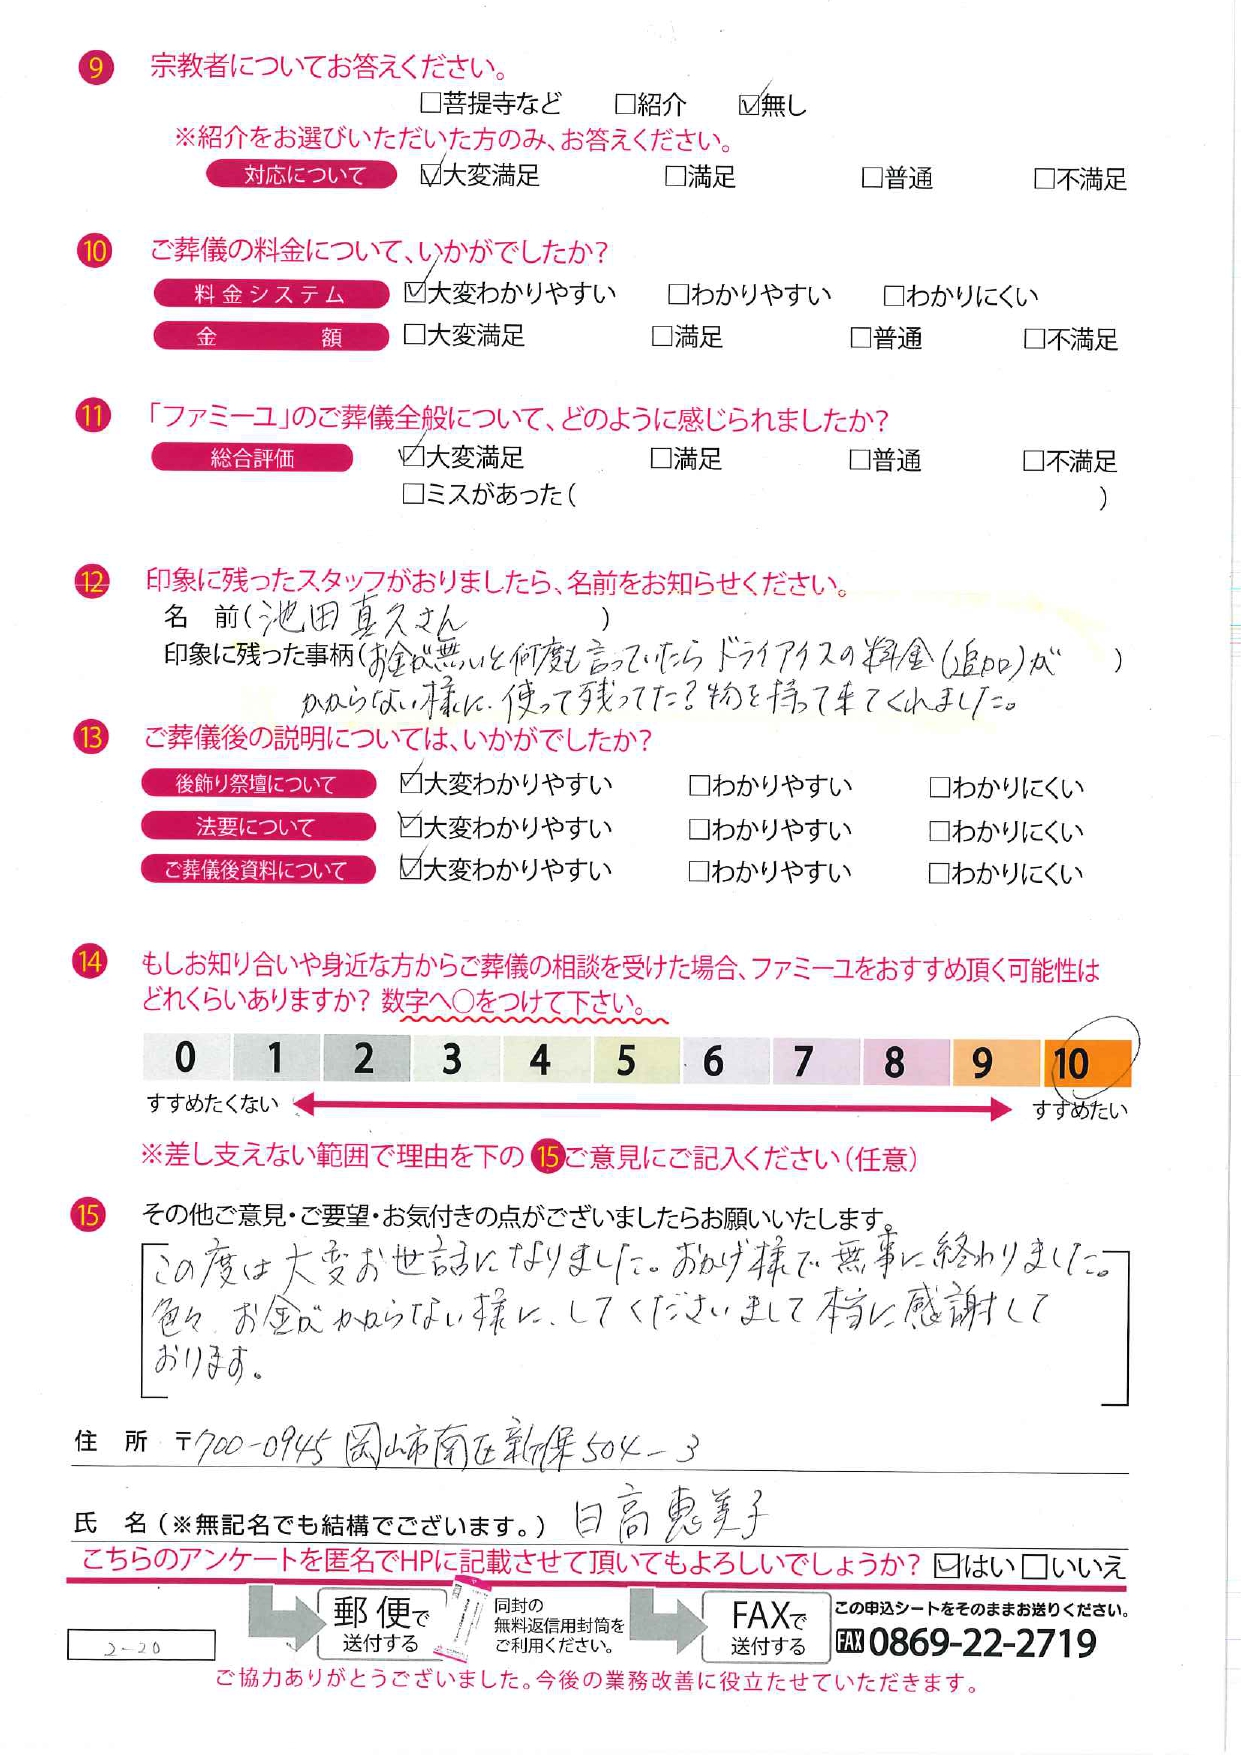 9 宗教者についてお答えください。
□菩提寺など □紹介 ☑無し
※紹介をお選びいただいた方のみ、お答えください。
対応について ☑大変満足 □満足 □普通 □不満足
10 ご葬儀の料金について、いかがでしたか？
料金システム ☑大変わかりやすい □わかりやすい □わかりにくい
金額 □大変満足 □満足 □普通 □不満足
11 「ファミーユ」のご葬儀全般について、どのように感じられましたか？
総合評価 ☑大変満足 □満足 □普通 □不満足
□ミスがあった（ ）
12 印象に残ったスタッフがおりましたら、名前をお知らせください。
名 前（池田真久さん ）
印象に残った事柄（お金が無いと何度も言っていたらドライアイスの料金（追加）が ）
かからない様に、使って残ってた？物を持って来てくれました。
13 ご葬儀後の説明については、いかがでしたか？
後飾り祭壇について ☑大変わかりやすい □わかりやすい □わかりにくい
法要について ☑大変わかりやすい □わかりやすい □わかりにくい
ご葬儀後資料について ☑大変わかりやすい □わかりやすい □わかりにくい
14 もしお知り合いや身近な方からご葬儀の相談を受けた場合、ファミーユをおすすめ頂く可能性は
どれくらいありますか？ 数字へ○をつけて下さい。
0 1 2 3 4 5 6 7 8 9 10
すすめたくない すすめたい
※差し支えない範囲で理由を下の15ご意見にご記入ください（任意）
15 その他ご意見・ご要望・お気付きの点がございましたらお願いいたします。
この度は大変お世話になりました。おかげ様で無事に終わりました。
色々、お金がかからない様に、してくださいまして本当に感謝して
おります。
住 所 〒700-0945 岡山市南区新保504-3
氏 名（※無記名でも結構でございます。） 日高恵美子
こちらのアンケートを匿名でHPに記載させて頂いてもよろしいでしょうか？ ☑はい □いいえ
郵便で送付する
同封の
無料返信用封筒を
ご利用ください。
FAXで送付する
この申込シートをそのままお送りください。
FAX 0869-22-2719
2-20
ご協力ありがとうございました。今後の業務改善に役立たせていただきます。